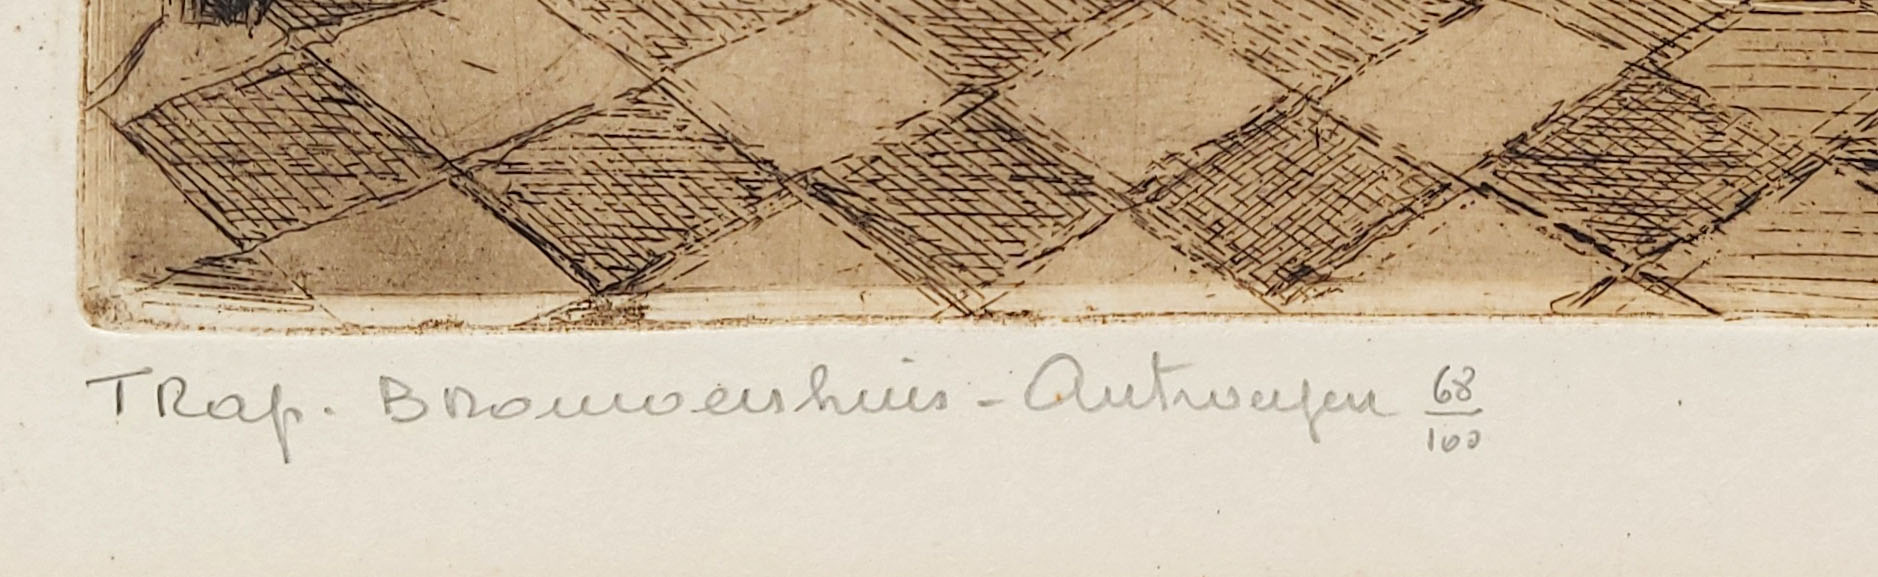 Trap. Brouwershuis - Antwerpen 68/100